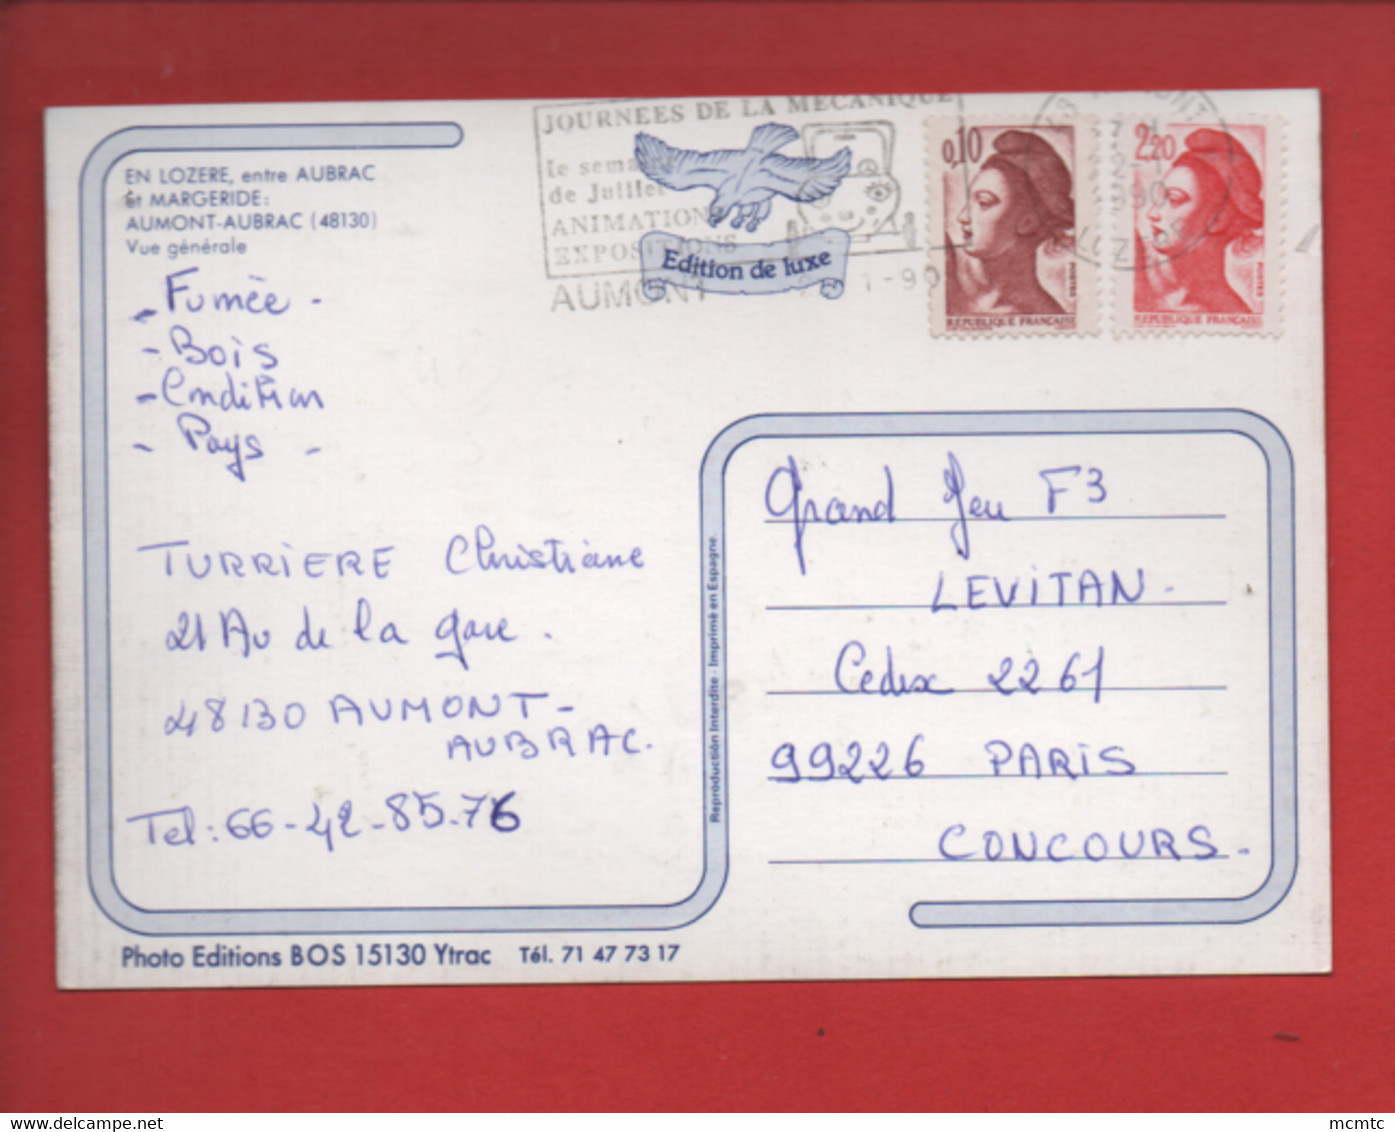 JOURNEES DE LA MECANIQUE
de Juillet
ANIMATION
EXPOSITIONS
AUMONT
Edition de luxe
0,10
REPUBLIQUE FRANÇAISE
POSTES
2,20
REPUBLIQUE FRANÇAISE
POSTES
EN LOZERE, entre AUBRAC
et MARGERIDE:
AUMONT-AUBRAC (48130)
Vue générale
- Fumée -
- Bois
- Condition
- Pays -
TURRIERE Christiane
21 Av de la gare.
48130 AUMONT-
AUBRAC.
Tel: 66-42-85-76
Reproduction Interdite - Imprimé en Espagne.
Grand Jeu F3
LEVITAN.
Cedex 2261
99226 PARIS
CONCOURS.
Photo Editions BOS 15130 Ytrac Tél. 71 47 73 17
mcmtc